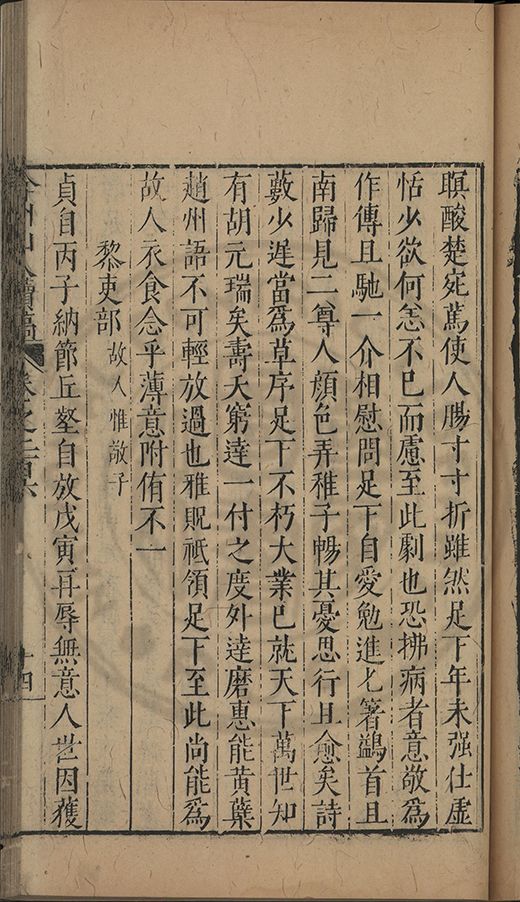 瞑酸楚宛篤使人腸寸寸折雖然足下年未强仕虚
恬少欲何怎不已而慮至此劇也恐拂病者意敬爲
作傳且馳一介相慰問足下自愛勉進匕箸鷁首且
南歸見二尊人顔色弄稚子暢其憂思行且愈矣詩
藪少遲當爲草序足下不朽大業已就天下萬世知
有胡元瑞矣壽夭窮達一付之度外達磨惠能黄蘗
趙州語不可輕放過也雅貺祇領足下至此尚能爲
故人衣食念乎薄意附侑不一
黎吏部 故人惟敬子
貞自丙子納節丘壑自放戊寅再辱無意人世因獲
弇州山人續稿 卷之二百六 十四